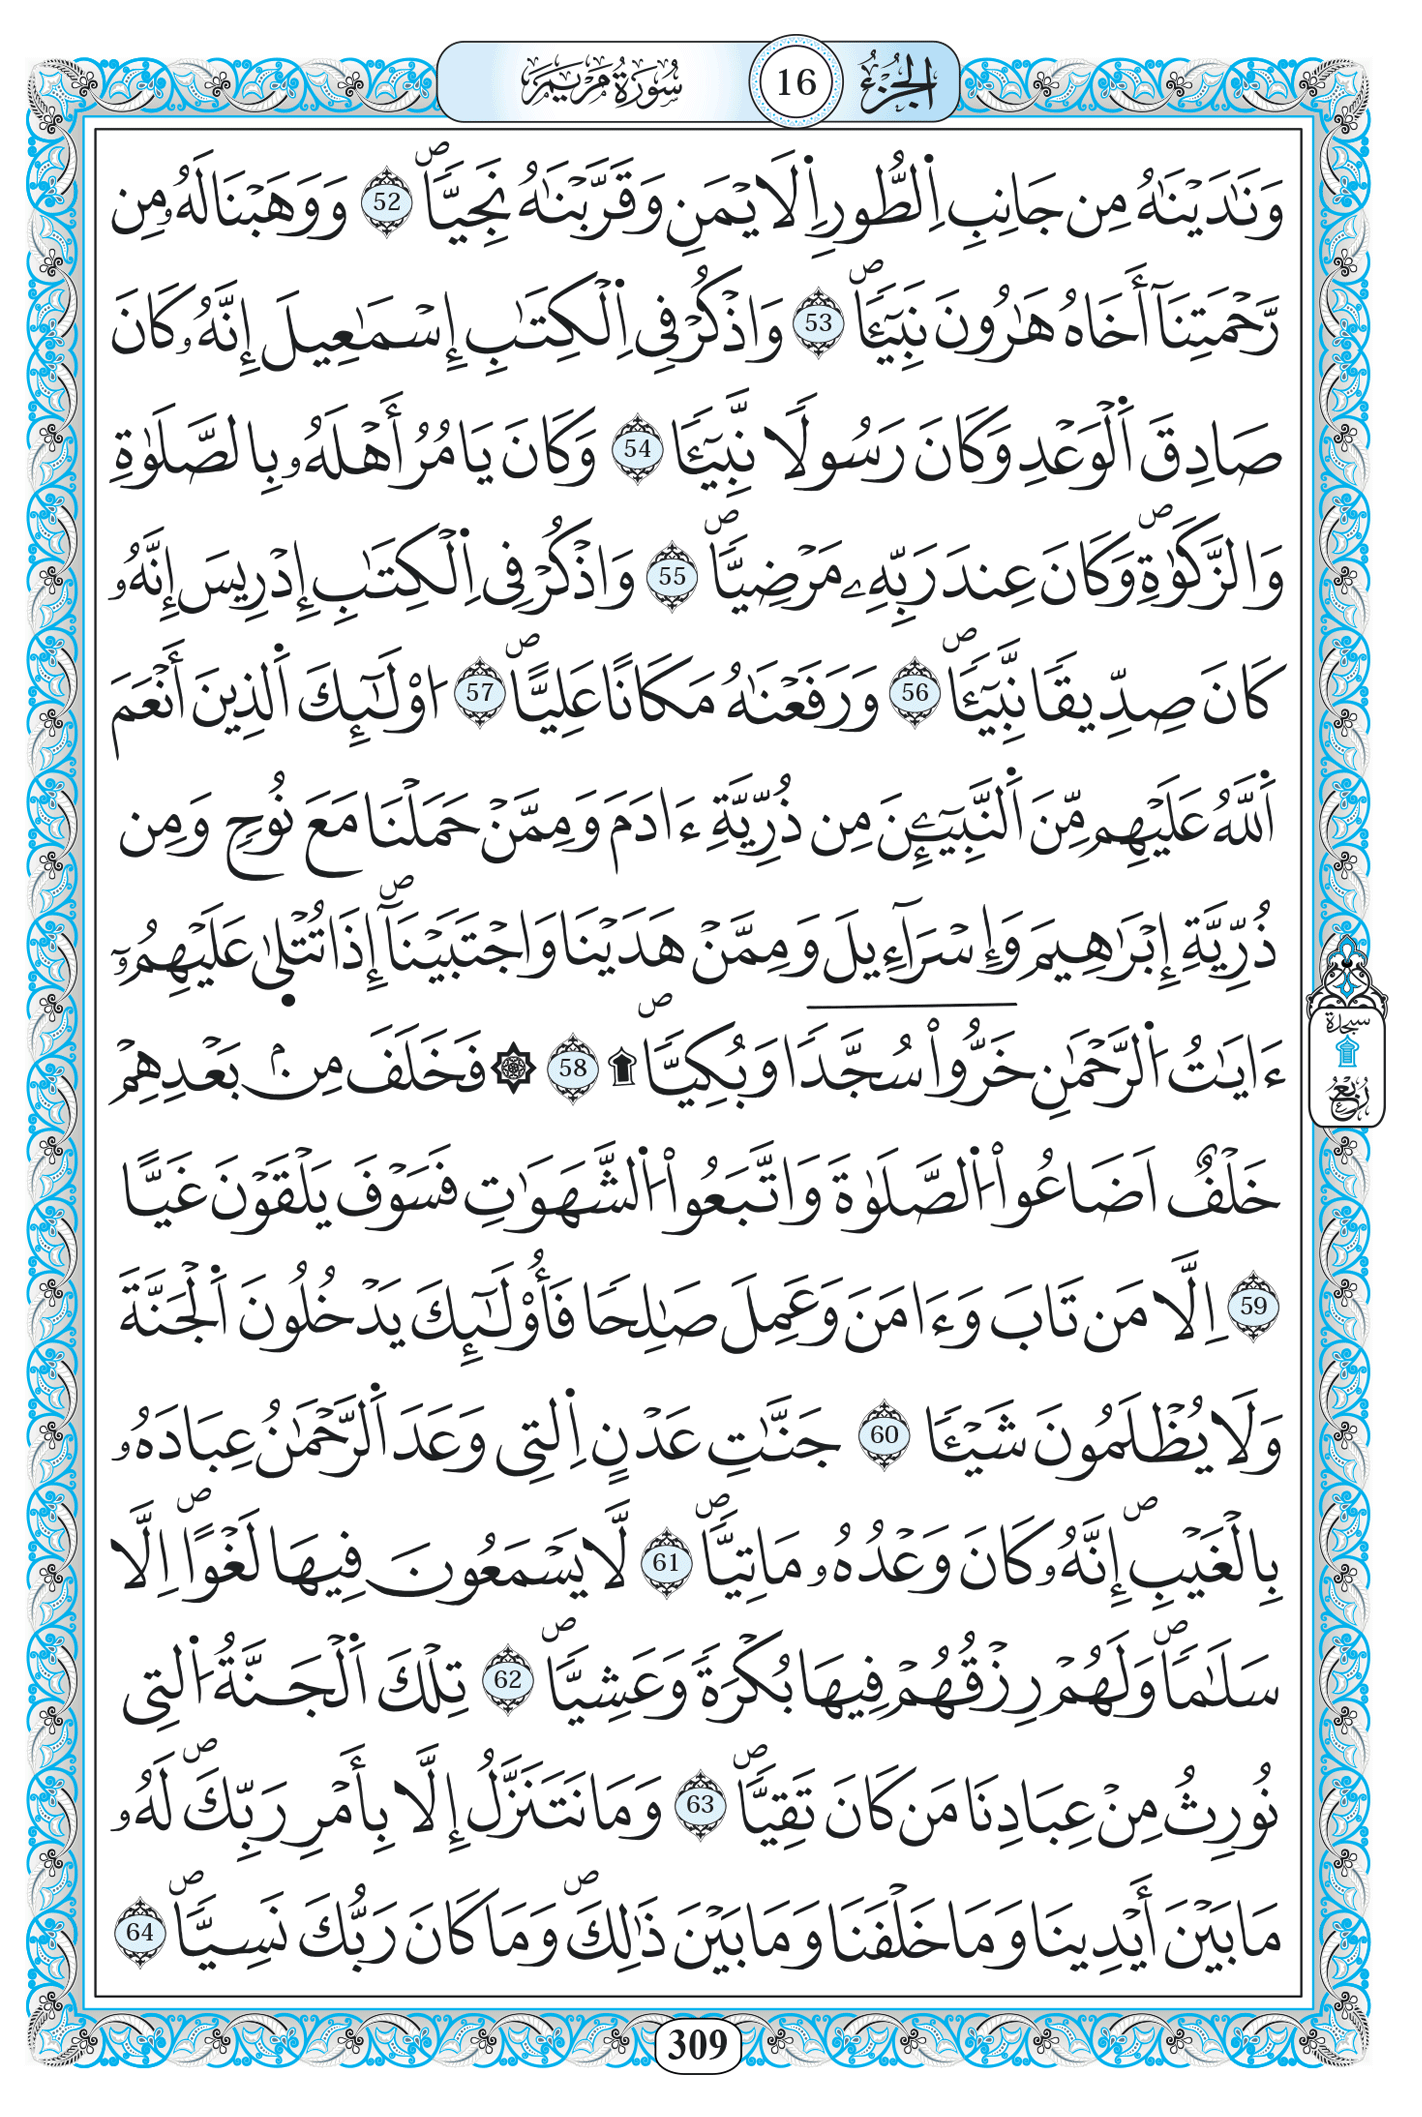 الجزء 16 سورة مريم
وَنَٰدَيْنَٰهُ مِن جَانِبِ اِ۬لطُّورِ اِ۬لَايْمَنِ وَقَرَّبْنَٰهُ نَجِيّاٗۖ 52 وَوَهَبْنَا لَهُۥ مِن
رَّحْمَتِنَآ أَخَاهُ هَٰرُونَ نَبِيٓـٔاٗۖ 53 وَاذْكُرْ فِي اِ۬لْكِتَٰبِ إِسْمَٰعِيلَ إِنَّهُۥ كَانَ
صَادِقَ اَ۬لْوَعْدِ وَكَانَ رَسُولاٗ نَّبِيٓـٔاٗ 54 وَكَانَ يَامُرُ أَهْلَهُۥ بِالصَّلَوٰةِ
وَالزَّكَوٰةِۖ وَكَانَ عِندَ رَبِّهِۦ مَرْضِيّاٗۖ 55 وَاذْكُرْ فِي اِ۬لْكِتَٰبِ إِدْرِيسَ إِنَّهُۥ
كَانَ صِدِّيقاٗ نَّبِيٓـٔاٗۖ 56 وَرَفَعْنَٰهُ مَكَاناً عَلِيّاًۖ 57 اوْلَٰٓئِكَ اَ۬لذِينَ أَنْعَمَ
اَ۬للَّهُ عَلَيْهِم مِّنَ اَ۬لنَّبِيٓـِٕۧنَ مِن ذُرِّيَّةِ ءَادَمَ وَمِمَّنْ حَمَلْنَا مَعَ نُوحٖ وَمِن
ذُرِّيَّةِ إِبْرَٰهِيمَ وَإِسْرَآءِيلَ وَمِمَّنْ هَدَيْنَا وَاجْتَبَيْنَآۖ إِذَا تُتْل۪يٰ عَلَيْهِمُۥٓ
ءَايَٰتُ اُ۬لرَّحْمَٰنِ خَرُّواْ سُجَّداٗ وَبُكِيّاٗۖ ۩ 58 ۞ فَخَلَفَ مِنۢ بَعْدِهِمْ
خَلْفٌ اَضَاعُواْ اُ۬لصَّلَوٰةَ وَاتَّبَعُواْ اُ۬لشَّهَوَٰتِ فَسَوْفَ يَلْقَوْنَ غَيّاً
59 اِلَّا مَن تَابَ وَءَامَنَ وَعَمِلَ صَٰلِحاٗ فَأُوْلَٰٓئِكَ يَدْخُلُونَ اَ۬لْجَنَّةَ
وَلَا يُظْلَمُونَ شَيْـٔاٗ 60 جَنَّٰتِ عَدْنٍ اِ۬لتِي وَعَدَ اَ۬لرَّحْمَٰنُ عِبَادَهُۥ
بِالْغَيْبِۖ إِنَّهُۥ كَانَ وَعْدُهُۥ مَاتِيّاٗۖ 61 لَّا يَسْمَعُونَ فِيهَا لَغْواًۖ اِلَّا
سَلَٰماٗۖ وَلَهُمْ رِزْقُهُمْ فِيهَا بُكْرَةٗ وَعَشِيّاٗۖ 62 تِلْكَ اَ۬لْجَنَّةُ اُ۬لتِي
نُورِثُ مِنْ عِبَادِنَا مَن كَانَ تَقِيّاٗۖ 63 وَمَا نَتَنَزَّلُ إِلَّا بِأَمْرِ رَبِّكَۖ لَهُۥ
مَا بَيْنَ أَيْدِينَا وَمَا خَلْفَنَا وَمَا بَيْنَ ذَٰلِكَۖ وَمَا كَانَ رَبُّكَ نَسِيّاٗۖ 64
سجدة
ربع
309